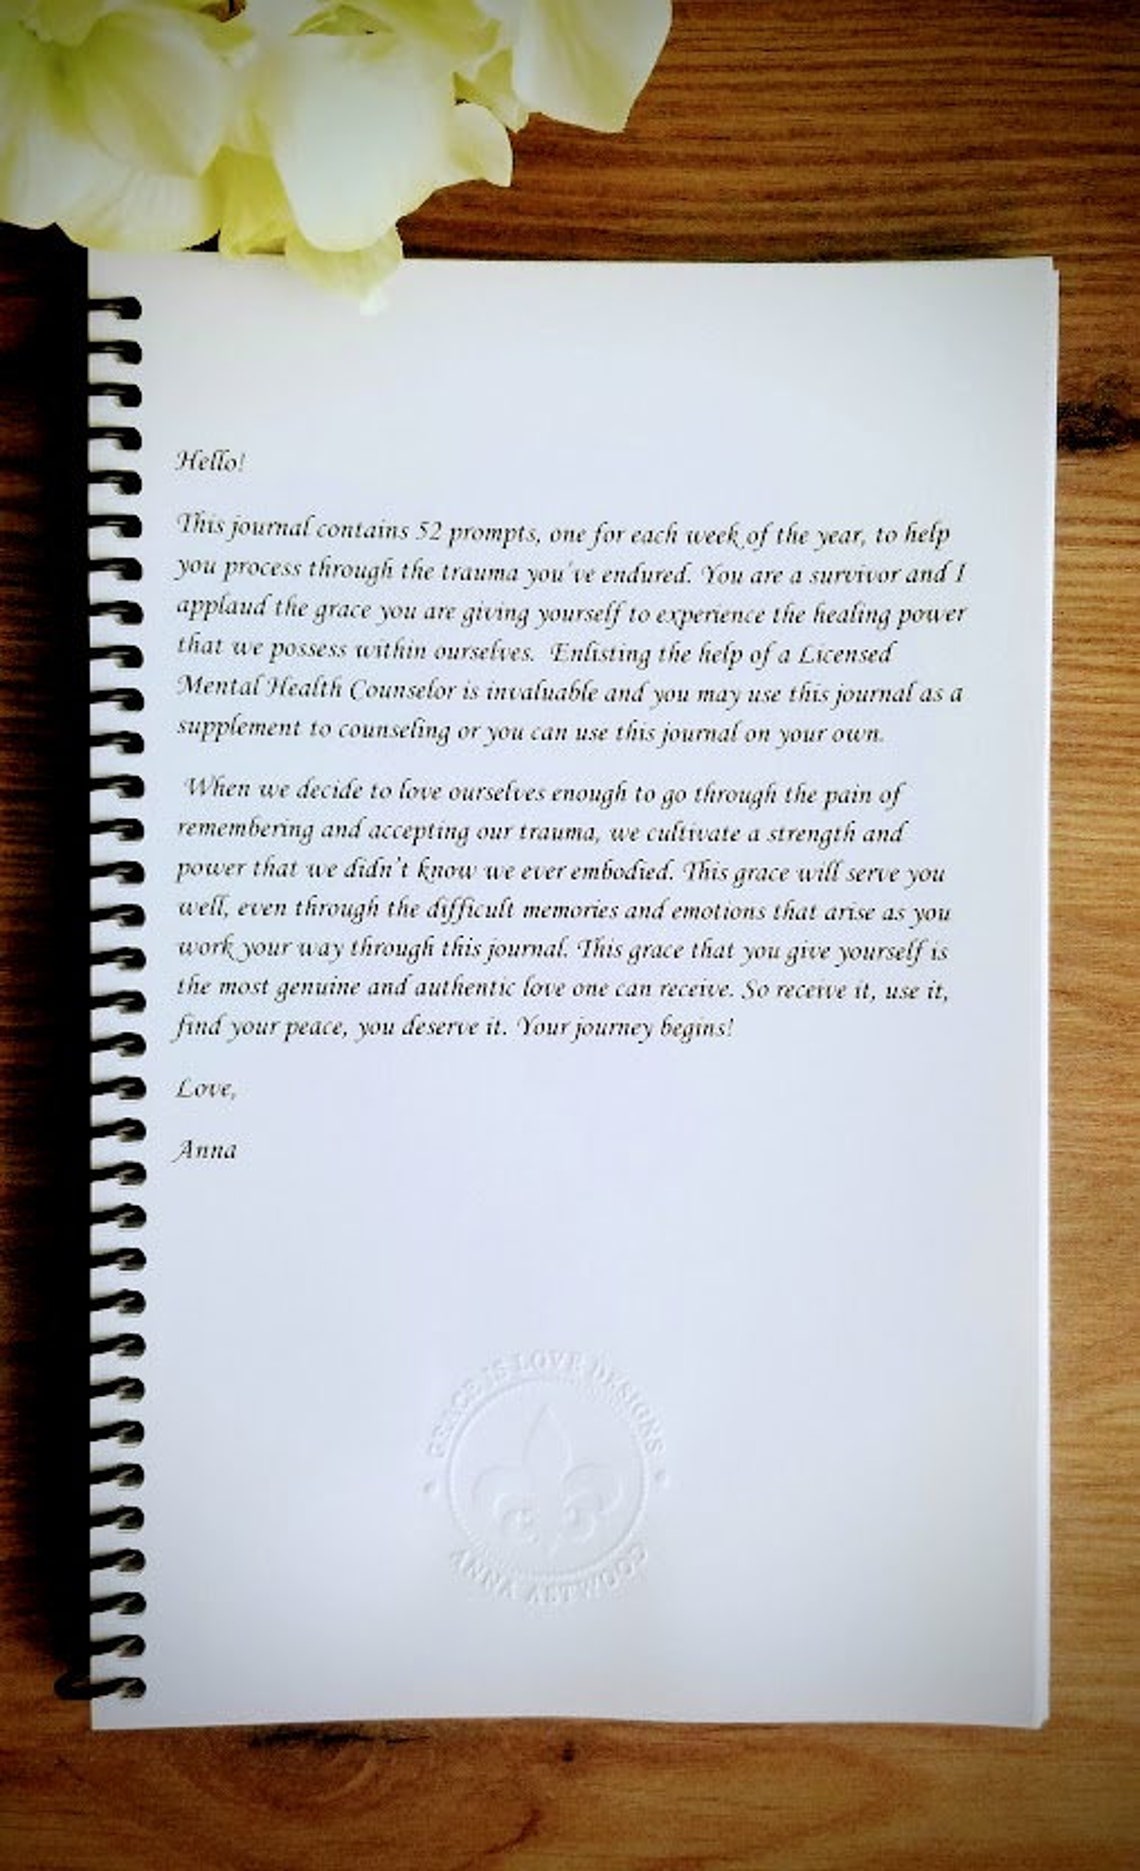 Hello!
This journal contains 52 prompts, one for each week of the year, to help
you process through the trauma you've endured. You are a survivor and I
applaud the grace you are giving yourself to experience the healing power
that we possess within ourselves.  Enlisting the help of a Licensed
Mental Health Counselor is invaluable and you may use this journal as a
supplement to counseling or you can use this journal on your own.
When we decide to love ourselves enough to go through the pain of
remembering and accepting our trauma, we cultivate a strength and
power that we didn't know we ever embodied. This grace will serve you
well, even through the difficult memories and emotions that arise as you
work your way through this journal. This grace that you give yourself is
the most genuine and authentic love one can receive. So receive it, use it,
find your peace, you deserve it. Your journey begins!
Love,
Anna
GRACE IS LOVE DESIGNS
ANNA